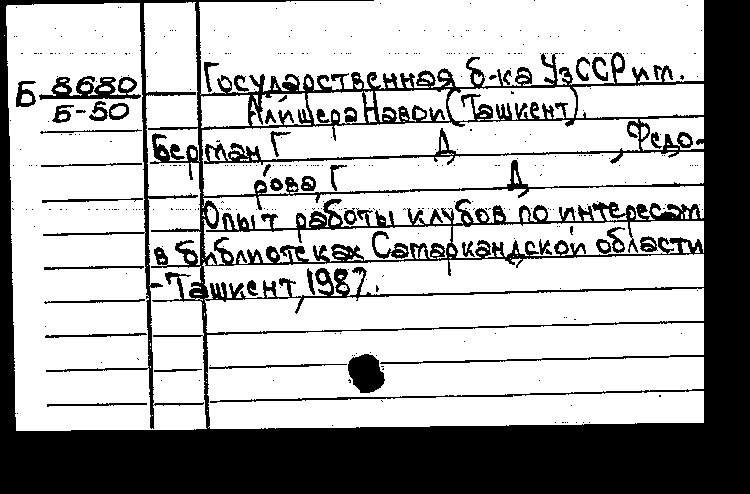 Б 8680
Б-50
Государственная б-ка УзССР им.
Алишера Навои (Ташкент).
Берман, Г Д , Федо-
рова, Г Д
Опыт работы клубов по интересам
в библиотеках Самаркандской области
- Ташкент, 1987.